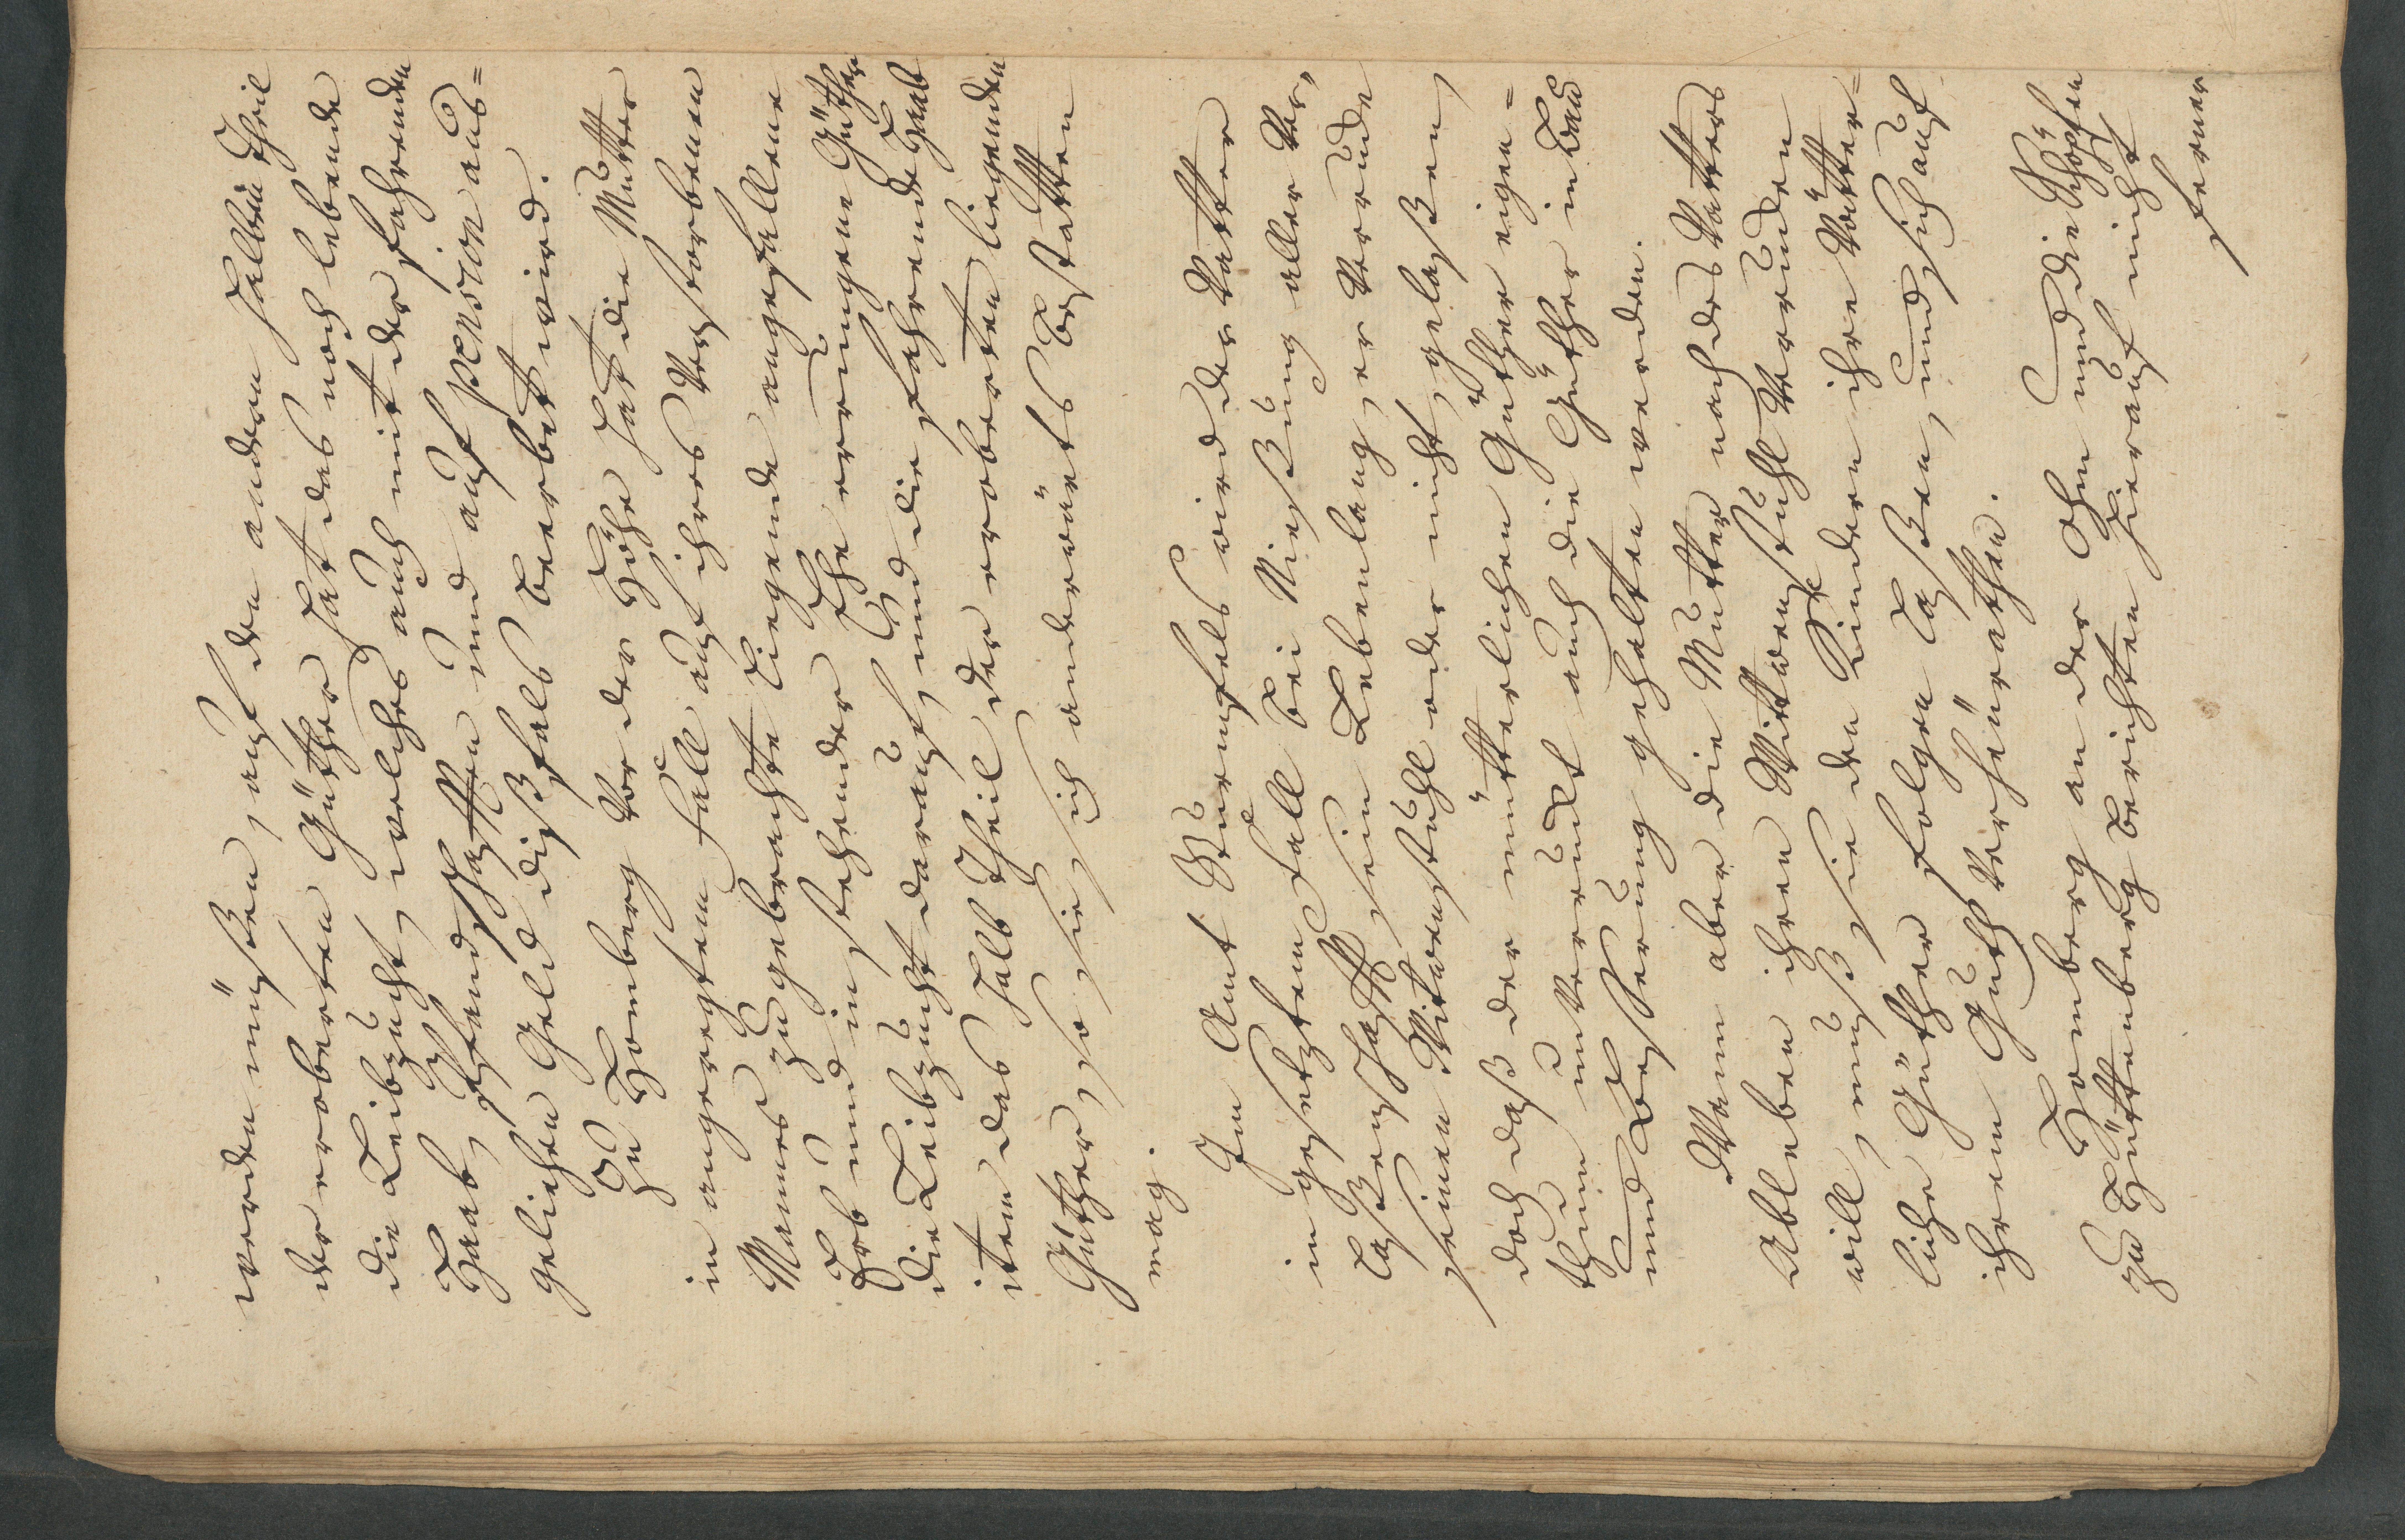 werden müßen, auf den andern halben Theil
der eroberten Güther hat das noch lebende
die Leibzucht, welches auch mit der fahrenden
Haab, Pfandschafften und auf pension aus=
geliehen Geld dißfals beerbet wird.
Zu Homberg vor der Höhe hat die Mutter
in angeregtem Fall auf ihres verstorbenen
Mannes zugebrachte liegende angefallene
Erb und in stehender Ehe errungene Güther
die Leibzucht darauf, und die fahrende Haab
item das halb Theil der eroberten liegenden
Güther, so sie sich anderwärts bestatten
mag.
Im Amt Bürmsels wird der Vatter
in gesetztem Fall bei Nießung aller Ver,
laßenschafft sein Lebenlang, er verrucke
seinen Witwenstuhl oder nicht, gelaßen,
doch daß der mütterlichen Güther eigen=
thum unverruckt auch die Güther in Bau
und Beßerung gehalten werden.
Wann aber die Mutter nach des Vatters
Ableben ihren Wittwenstuhl verrucken
will, muß sie den Kindern ihre Vätter=
liche Güther folgen laßen, und sich auf
ihrem Guth verheurathen.
Homberg an der Ohm und die Schöpfen
zu Hüttenberg berichten hierauf nicht
ferner